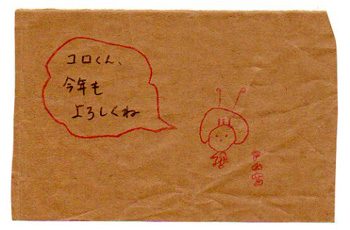 コロくん、
今年も
よろしくね